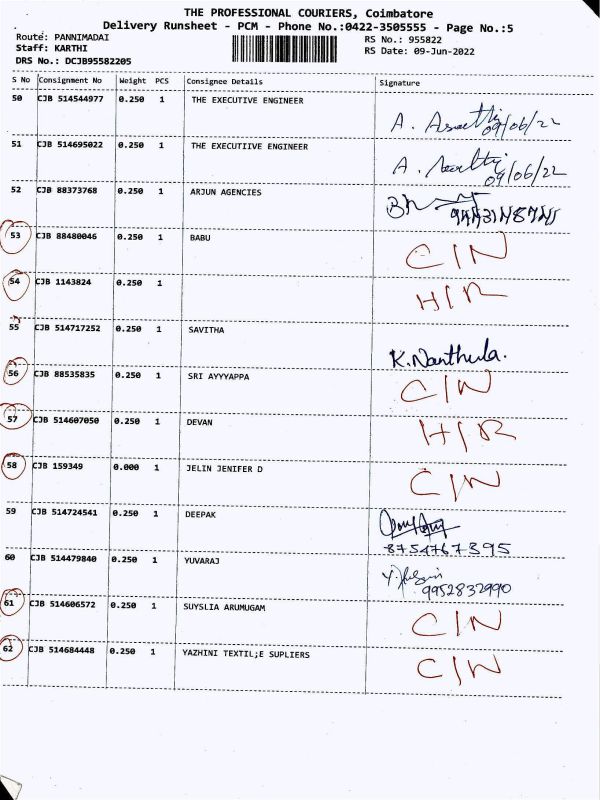 THE PROFESSIONAL COURIERS, Coimbatore
Delivery Runsheet - PCM - Phone No.:0422-3505555 - Page No.:5
Route: PANNIMADAI
RS No.: 955822
Staff: KARTHI
RS Date: 09-Jun-2022
DRS No.: DCJB95582205
S No Consignment No Weight PCS Consignee Details Signature
50 CJB 514544977 0.250 1 THE EXECUTIVE ENGINEER
A. 09/06/22
51 CJB 514695022 0.250 1 THE EXECUTIIVE ENGINEER
A. 09/06/22
52 CJB 88373768 0.250 1 ARJUN AGENCIES
53 CJB 88480046 0.250 1 BABU C/N
54 CJB 1143824 0.250 1 H/R
55 CJB 514717252 0.250 1 SAVITHA
K. Nanthula.
56 CJB 88535835 0.250 1 SRI AYYYAPPA C/N
57 CJB 514607050 0.250 1 DEVAN H/R
58 CJB 159349 0.000 1 JELIN JENIFER D C/N
59 CJB 514724541 0.250 1 DEEPAK
8754767395
60 CJB 514479840 0.250 1 YUVARAJ
9952832990
61 CJB 514606572 0.250 1 SUYSLIA ARUMUGAM C/N
62 CJB 514684448 0.250 1 YAZHINI TEXTIL;E SUPLIERS C/N